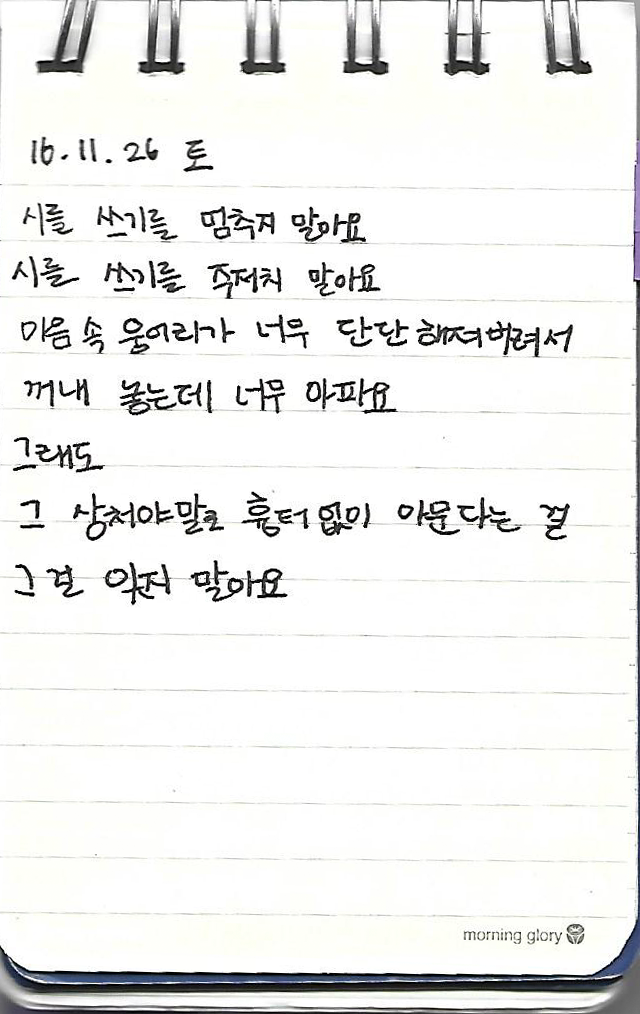 16.11.26 토
시를 쓰기를 멈추지 말아요
시를 쓰기를 주저치 말아요
마음 속 웅어리가 너무 단단해져버려서
꺼내 놓는데 너무 아파요
그래도
그 상처야말로 흉터 없이 아문다는 걸
그걸 잊지 말아요
morning glory